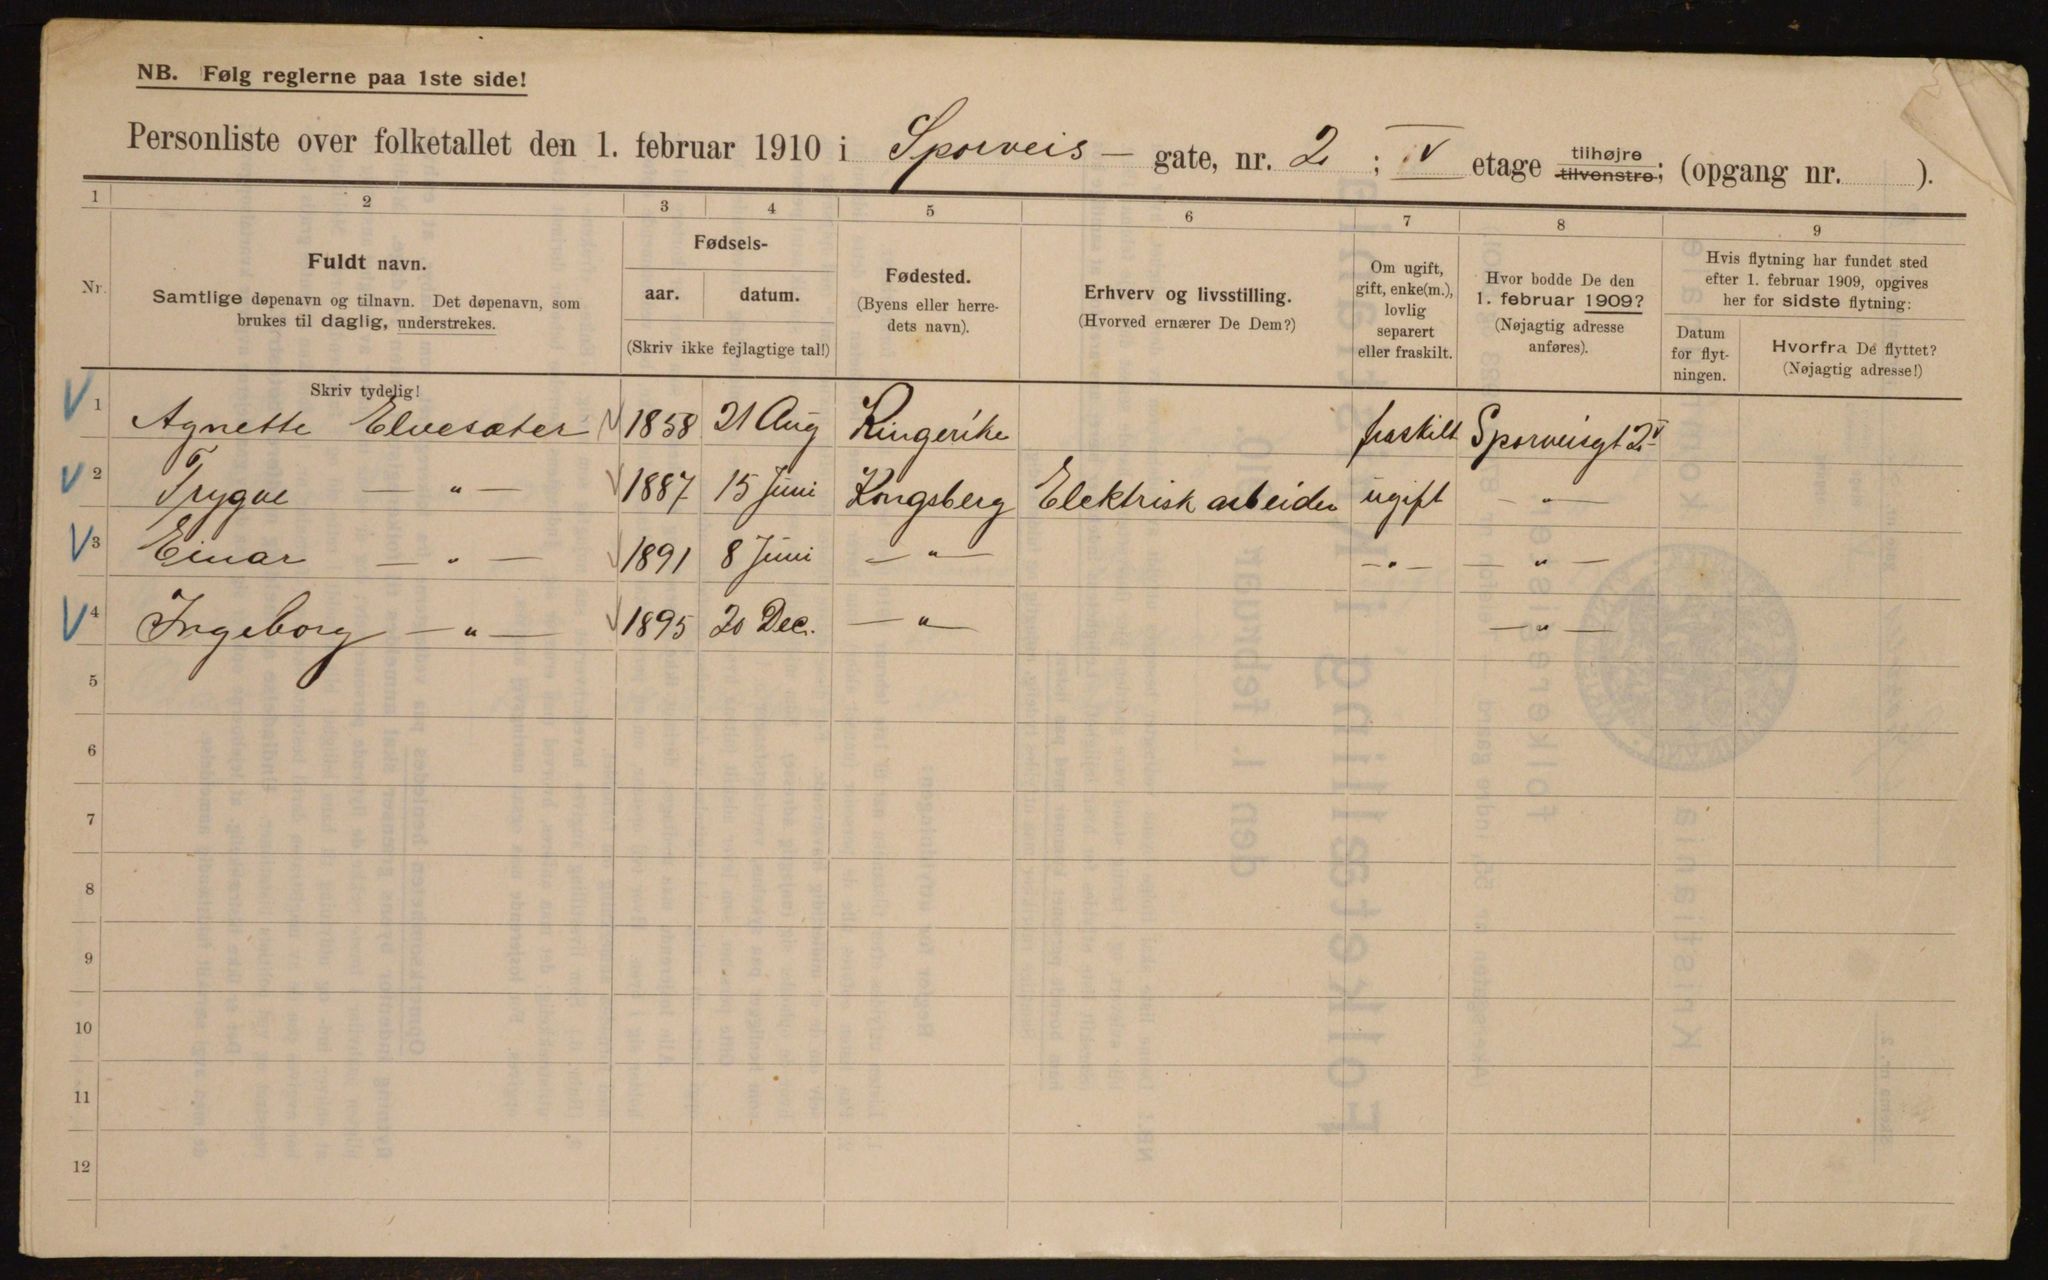 NB. Følg reglerne paa 1ste side!
Personliste over folketallet den 1. februar 1910 i Sporveis — gate, nr. 2 ; IV etage tilhøjre tilvenstre; (opgang nr. ).
1 2 3 4 5 6 7 8 9
Nr.
Fuldt navn.
Samtlige døpenavn og tilnavn. Det døpenavn, som
brukes til daglig, understrekes.
Fødsels-
aar.
datum.
(Skriv ikke fejlagtige tal!)
Fødested.
(Byens eller herre-
dets navn).
Erhverv og livsstilling.
(Hvorved ernærer De Dem?)
Om ugift,
gift, enke(m.),
lovlig
separert
eller fraskilt.
Hvor bodde De den
1. februar 1909?
(Nøjagtig adresse
anføres).
Hvis flytning har fundet sted
efter 1. februar 1909, opgives
her for sidste flytning:
Datum
for flyt-
ningen.
Hvorfra De flyttet?
(Nøjagtig adresse!)
Skriv tydelig!
1 Agnette Elvesæter 1858 21 Aug Ringerike fraskilt Sporveisgt 2 IV
2 Trygve — " — 1887 15 Juni Kongsberg Elektrisk arbeider ugift — " —
3 Einar — " — 1891 8 Juni — " — — " — — " —
4 Ingeborg — " — 1895 20 Dec. — " — — " —
5
6
7
8
9
10
11
12